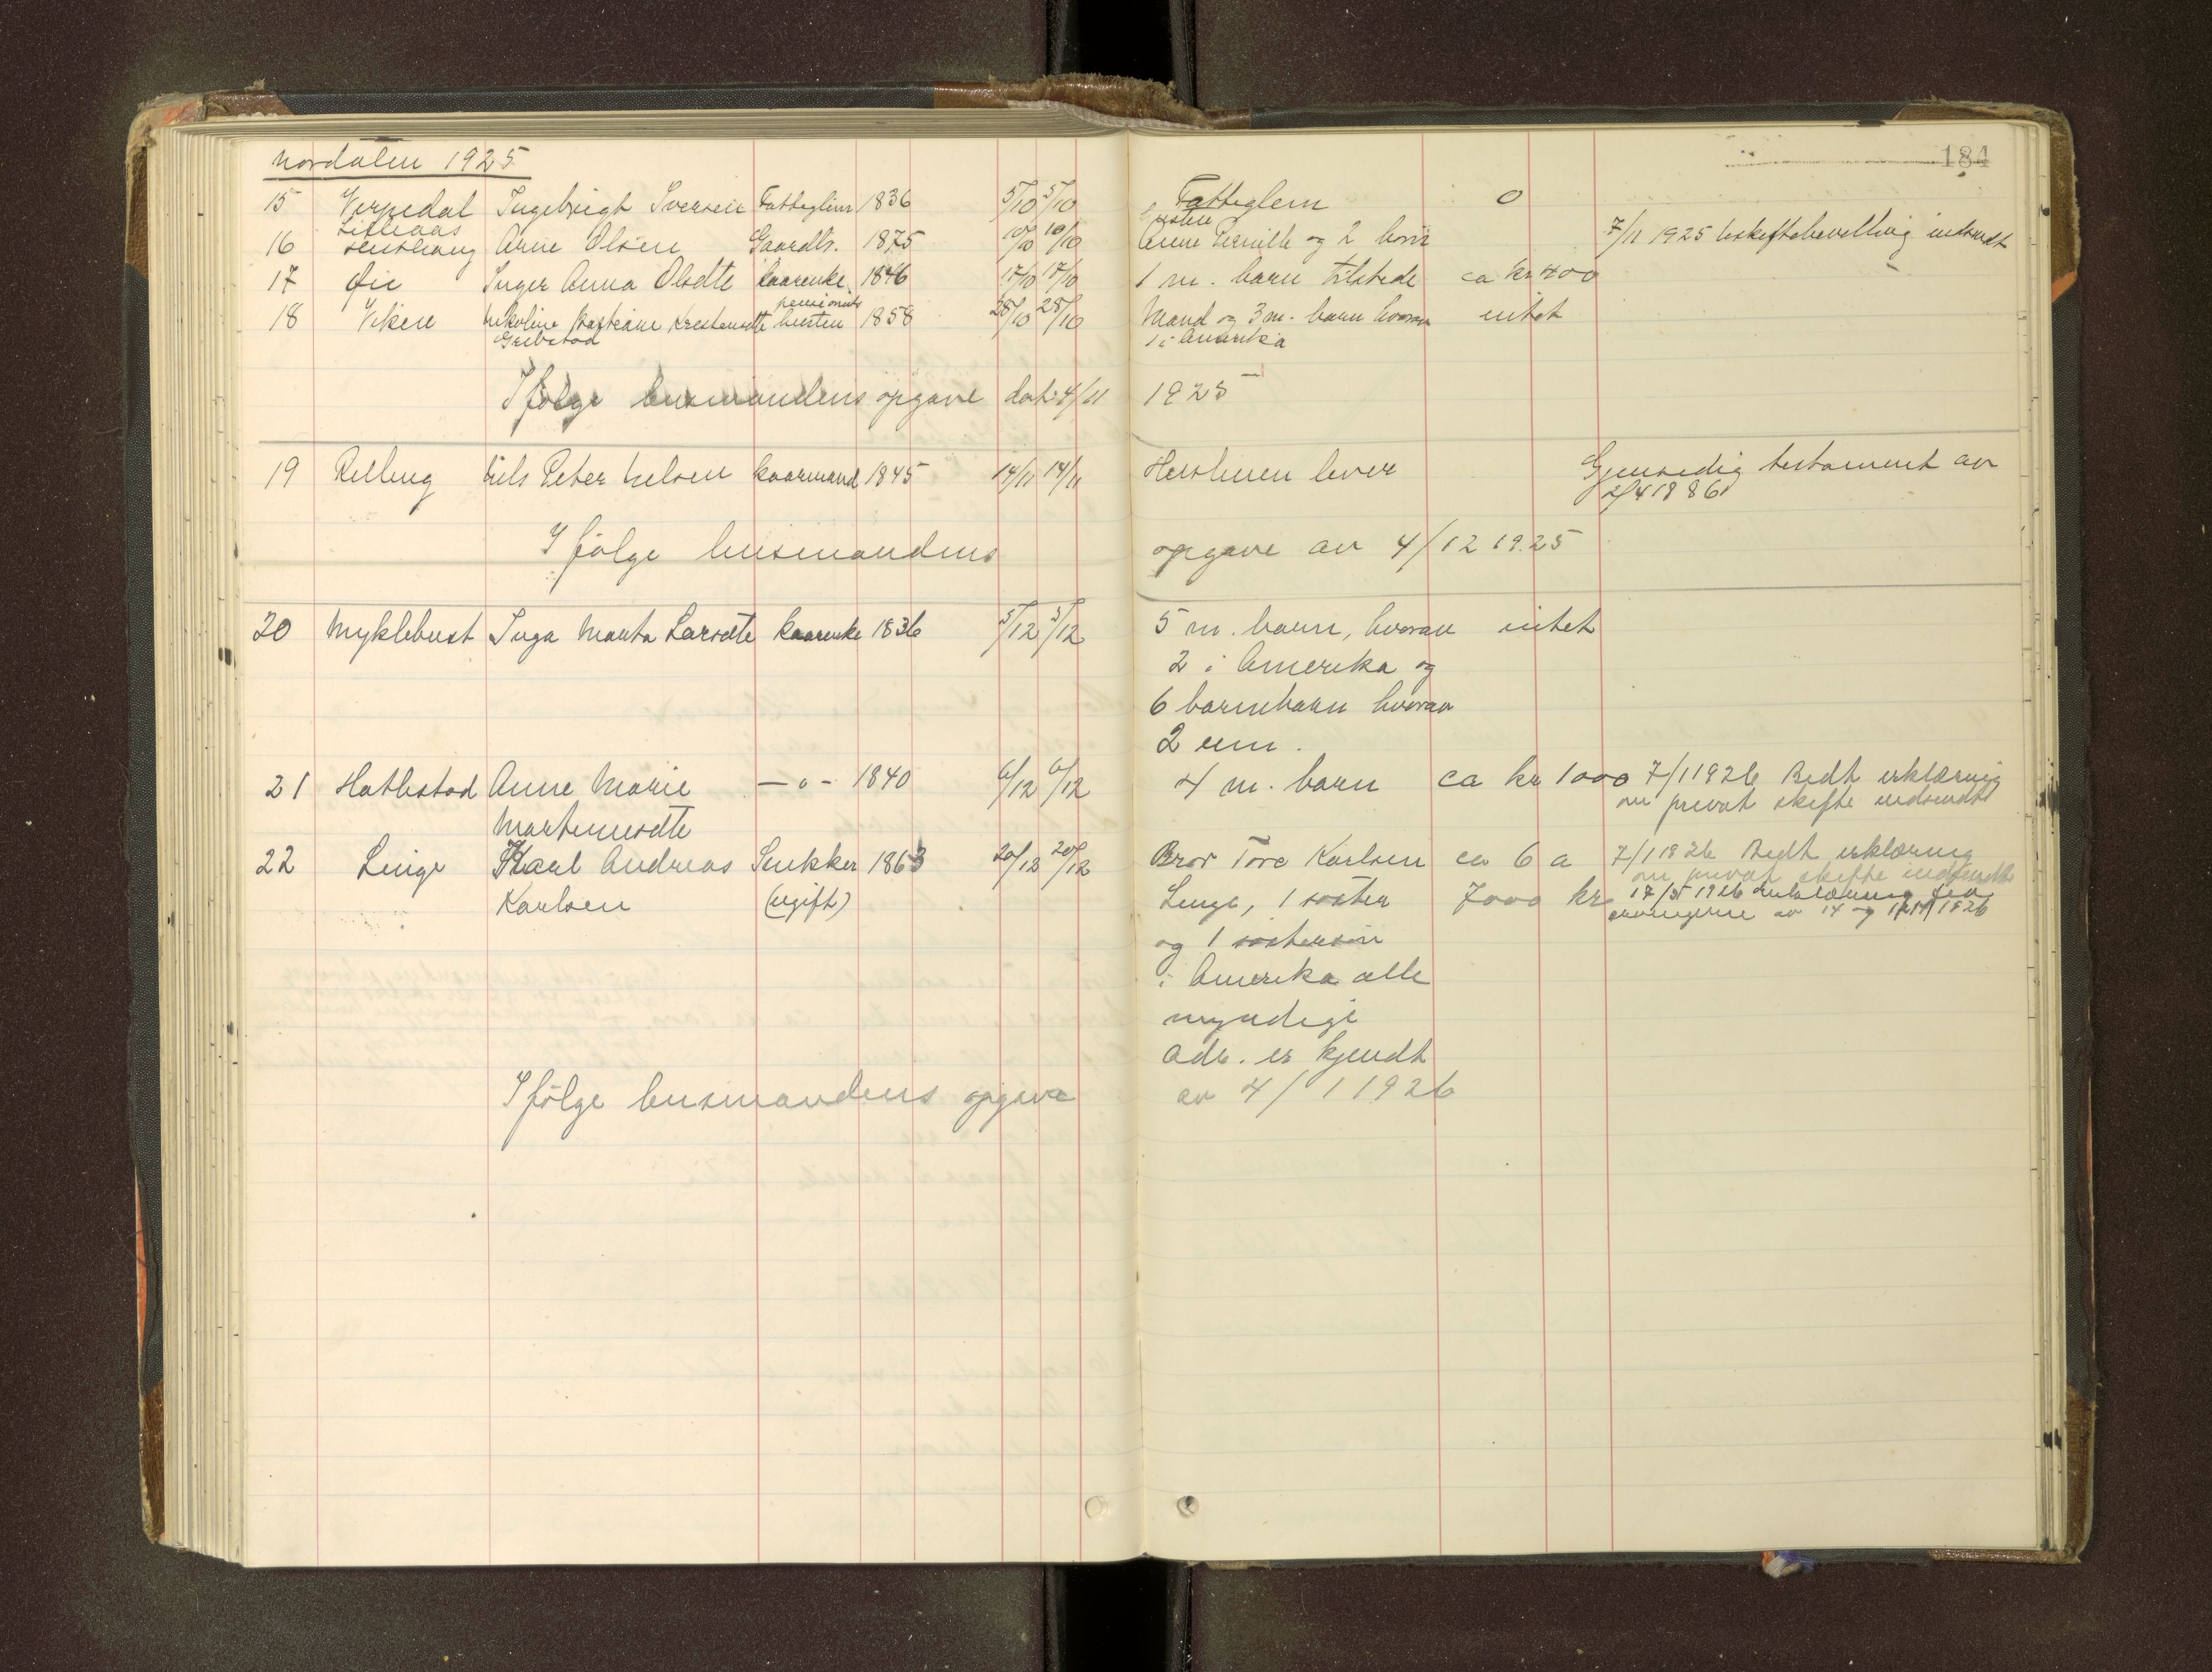 Nordalen 1925
184
15 Verpedal Ingebrigt Iversen Fatteglem 1836 5/10 5/10 Fatteglem 0
16 Arne Olsen Gaardbr. 1875 10/10 10/10 Anne Pernille og 2 born 7/11 1925 uskiftebevilling indsendt
17 Øie Inger Anna Olsdte kaarenke 1846 17/10 17/10 1 m. barn tilstede ca kr 400
pensionist
18 Viken Nikoline Krestensdte hustru 1858 28/10 28/10 Mand og 3 m. barn hvorav intet
1 i Amerika
I følge lensmandens opgave dat. 4/11 1925
19 Relling Nils Peter Nilsen kaarmand 1845 14/11 14/11 Hustruen lever Gjensidig testament av
2/4 1886
I følge lensmandens opgave av 4/12 1925
20 Myklebust Inga Marta Larsdte kaarenke 1836 5/12 5/12 5 m. barn, hvorav intet
2 i Amerika og
6 barnebarn hvorav
2 um.
21 Hatlestad Anne Marie — " — 1840 6/12 6/12 4 m. barn ca kr 1000 7/1 1926 Bedt erklæring
om privat skifte indsendt
Martinusdte
22 Linge Karl Andreas Snekker 1863 20/12 20/12 Bror Tore Karlsen ca 6 a 7/1 1926 Bedt erklæring
om privat skifte indsendt
Karlsen (ugift) Linge, 1 søster 7000 kr 17/5 1926 erklæring fra
arvingerne av 14 og
og 1 søstersøn
i Amerika alle
myndige
adr. er kjendt
I følge lensmandens opgave av 4/1 1926